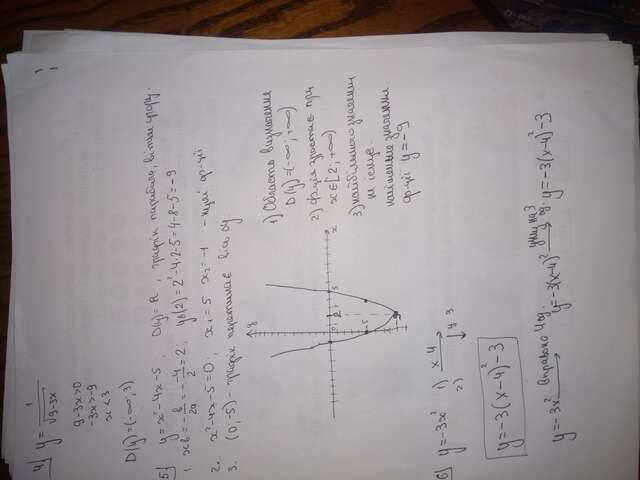 4) y = 1/√(9-3x)
9-3x>0
-3x>-9
x<3
D(y)=(-∞;3)
5) y=x²-4x-5; D(y)=R, графік парабола, вітки угору.
1. xв = -b/2a = - -4/2 = 2; yв(2)=2²-4·2-5=4-8-5=-9
2. x²-4x-5=0; x₁=5 x₂=-1 - нулі ф-ції
3. (0;-5) - графік перетинає вісь Oy.
1) Область визначення
D(y)=(-∞;+∞)
2) Ф-ція зростає при
x∈[2;+∞)
3) найбільшого значення
не існує.
найменше значення
ф-ції y=-9
y
x
-1
0
2
5
-5
-9
6) y=-3x² 1) x 4
2) y 3
y=-3(x-4)²-3
y=-3x² вправо 4 од. y=-3(x-4)² униз на 3 од. y=-3(x-4)²-3